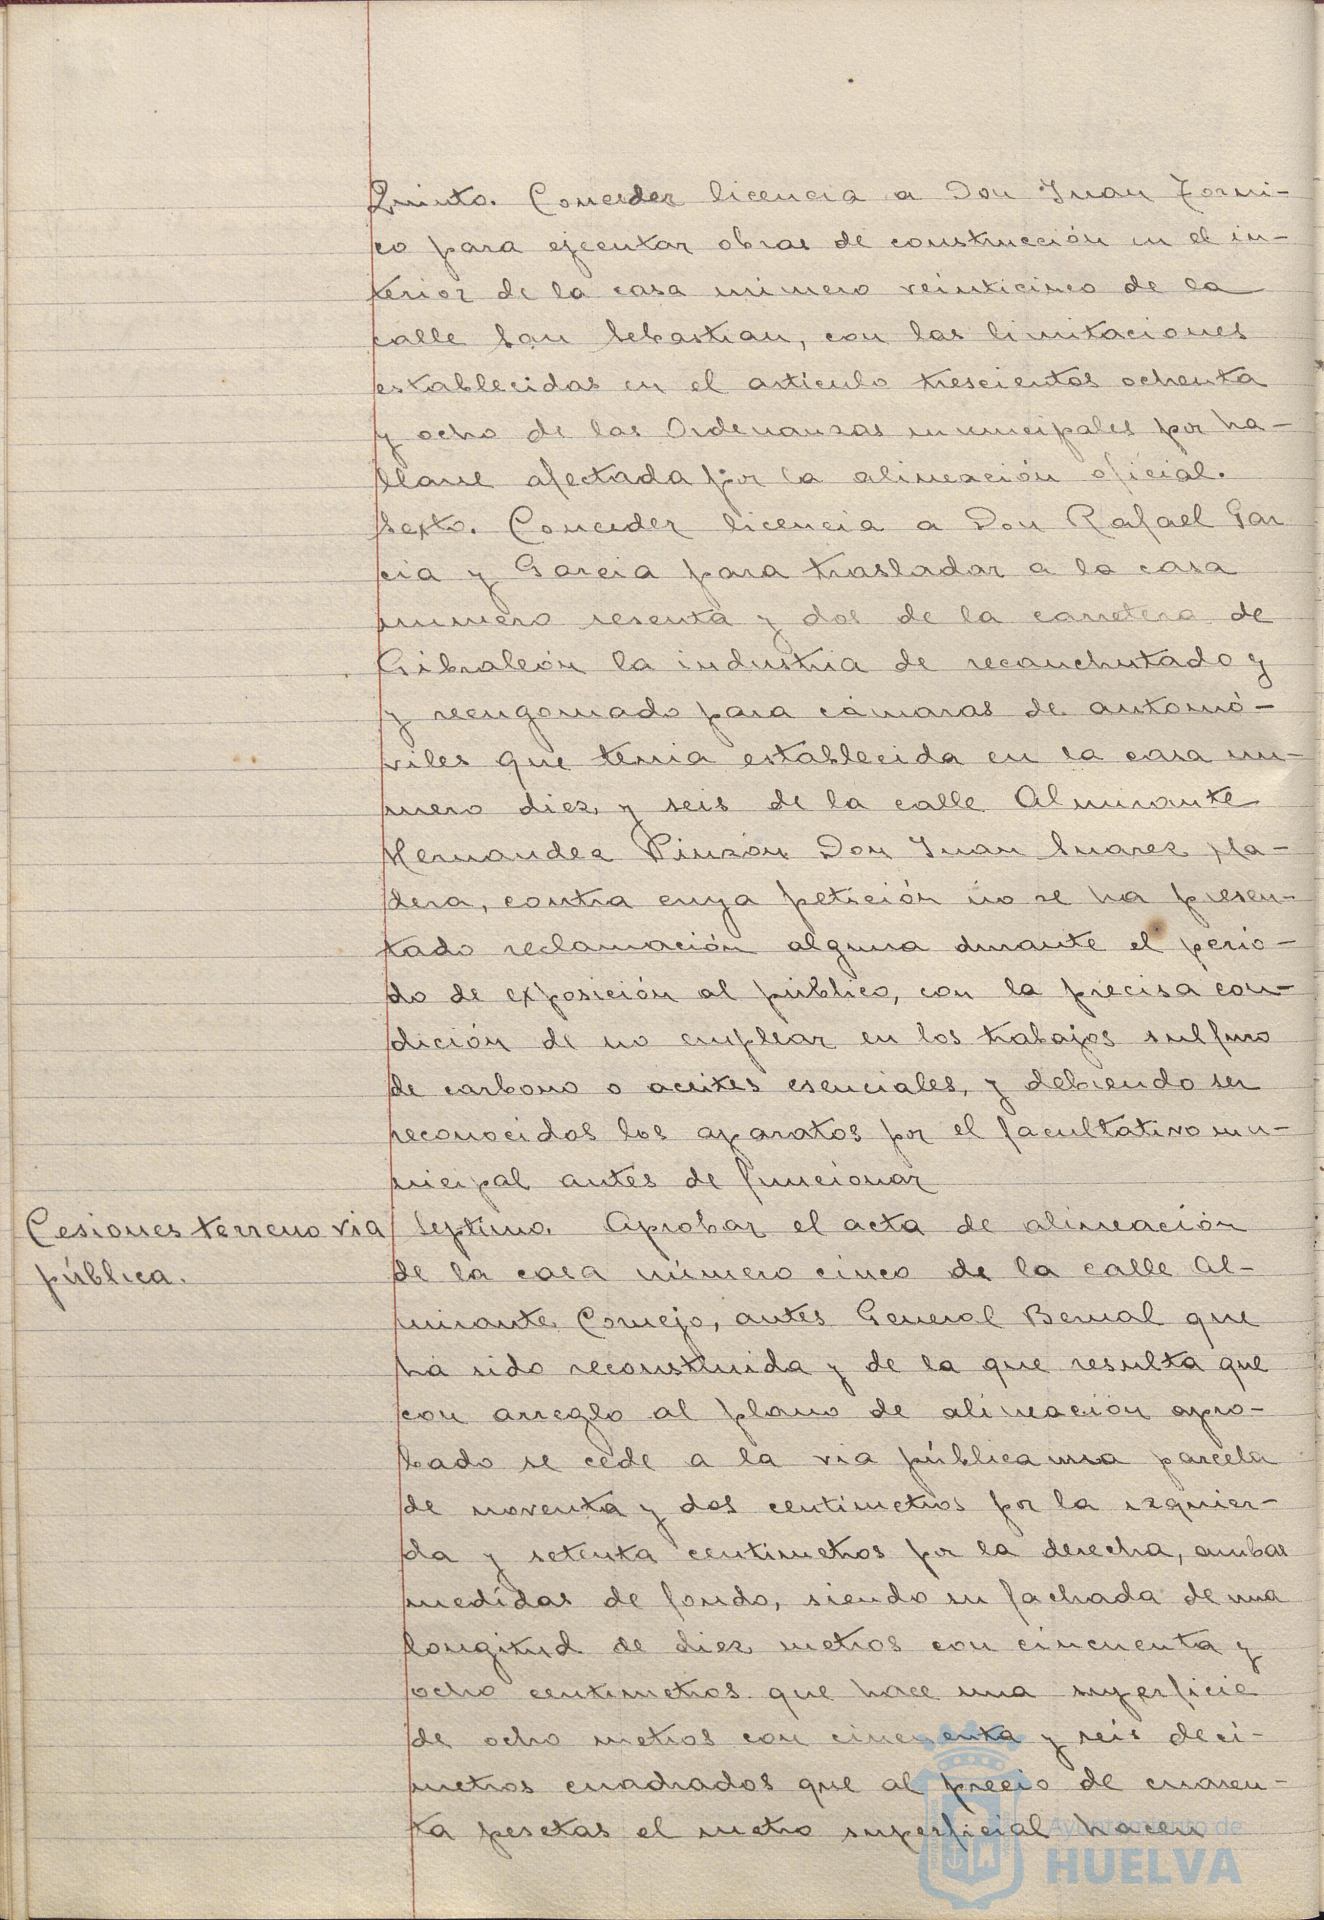 Quinto. Conceder licencia a Don Juan Formi-
co para ejecutar obras de construcción en el in-
terior de la casa número veinticinco de la
calle San Sebastian, con las limitaciones
establecidas en el articulo trescientos ochenta
y ocho de las Ordenanzas municipales por ha-
llarse afectada por la alineación oficial.
Sexto. Conceder licencia a Don Rafael Gar
cia y Garcia para trasladar a la casa
numero sesenta y dos de la carretera de
Gibraleón la industria de recauchutado y
y reengomado para cámaras de automó-
viles que tenia establecida en la casa nu-
mero diez y seis de la calle Almirante
Hernandez Pinzón Don Juan Suarez pla-
dera, contra cuya petición no se ha presen-
tado reclamación alguna durante el perio-
do de exposición al público, con la precisa con-
dición de no emplear en los trabajos sulfuro
de carbono o aceites esenciales, y debiendo ser
reconocidos los aparatos por el facultativo mu-
nicipal antes de funcionar
Cesiones terreno via
pública.
Septimo. Aprobar el acta de alineación
de la casa número cinco de la calle Al-
mirante Cornejo, antes General Bernal que
ha sido reconstruida y de la que resulta que
con arreglo al plano de alineación apro-
bado se cede a la via pública una parcela
de noventa y dos centimetros por la izquier-
da y setenta centimetros por la derecha, ambas
medidas de fondo, siendo su fachada de una
longitud de diez metros con cincuenta y
ocho centimetros que hace una superficie
de ocho metros con cincuenta y seis deci-
metros cuadrados que al precio de cuaren-
ta pesetas el metro superficial hacen
Ayuntamiento de
HUELVA